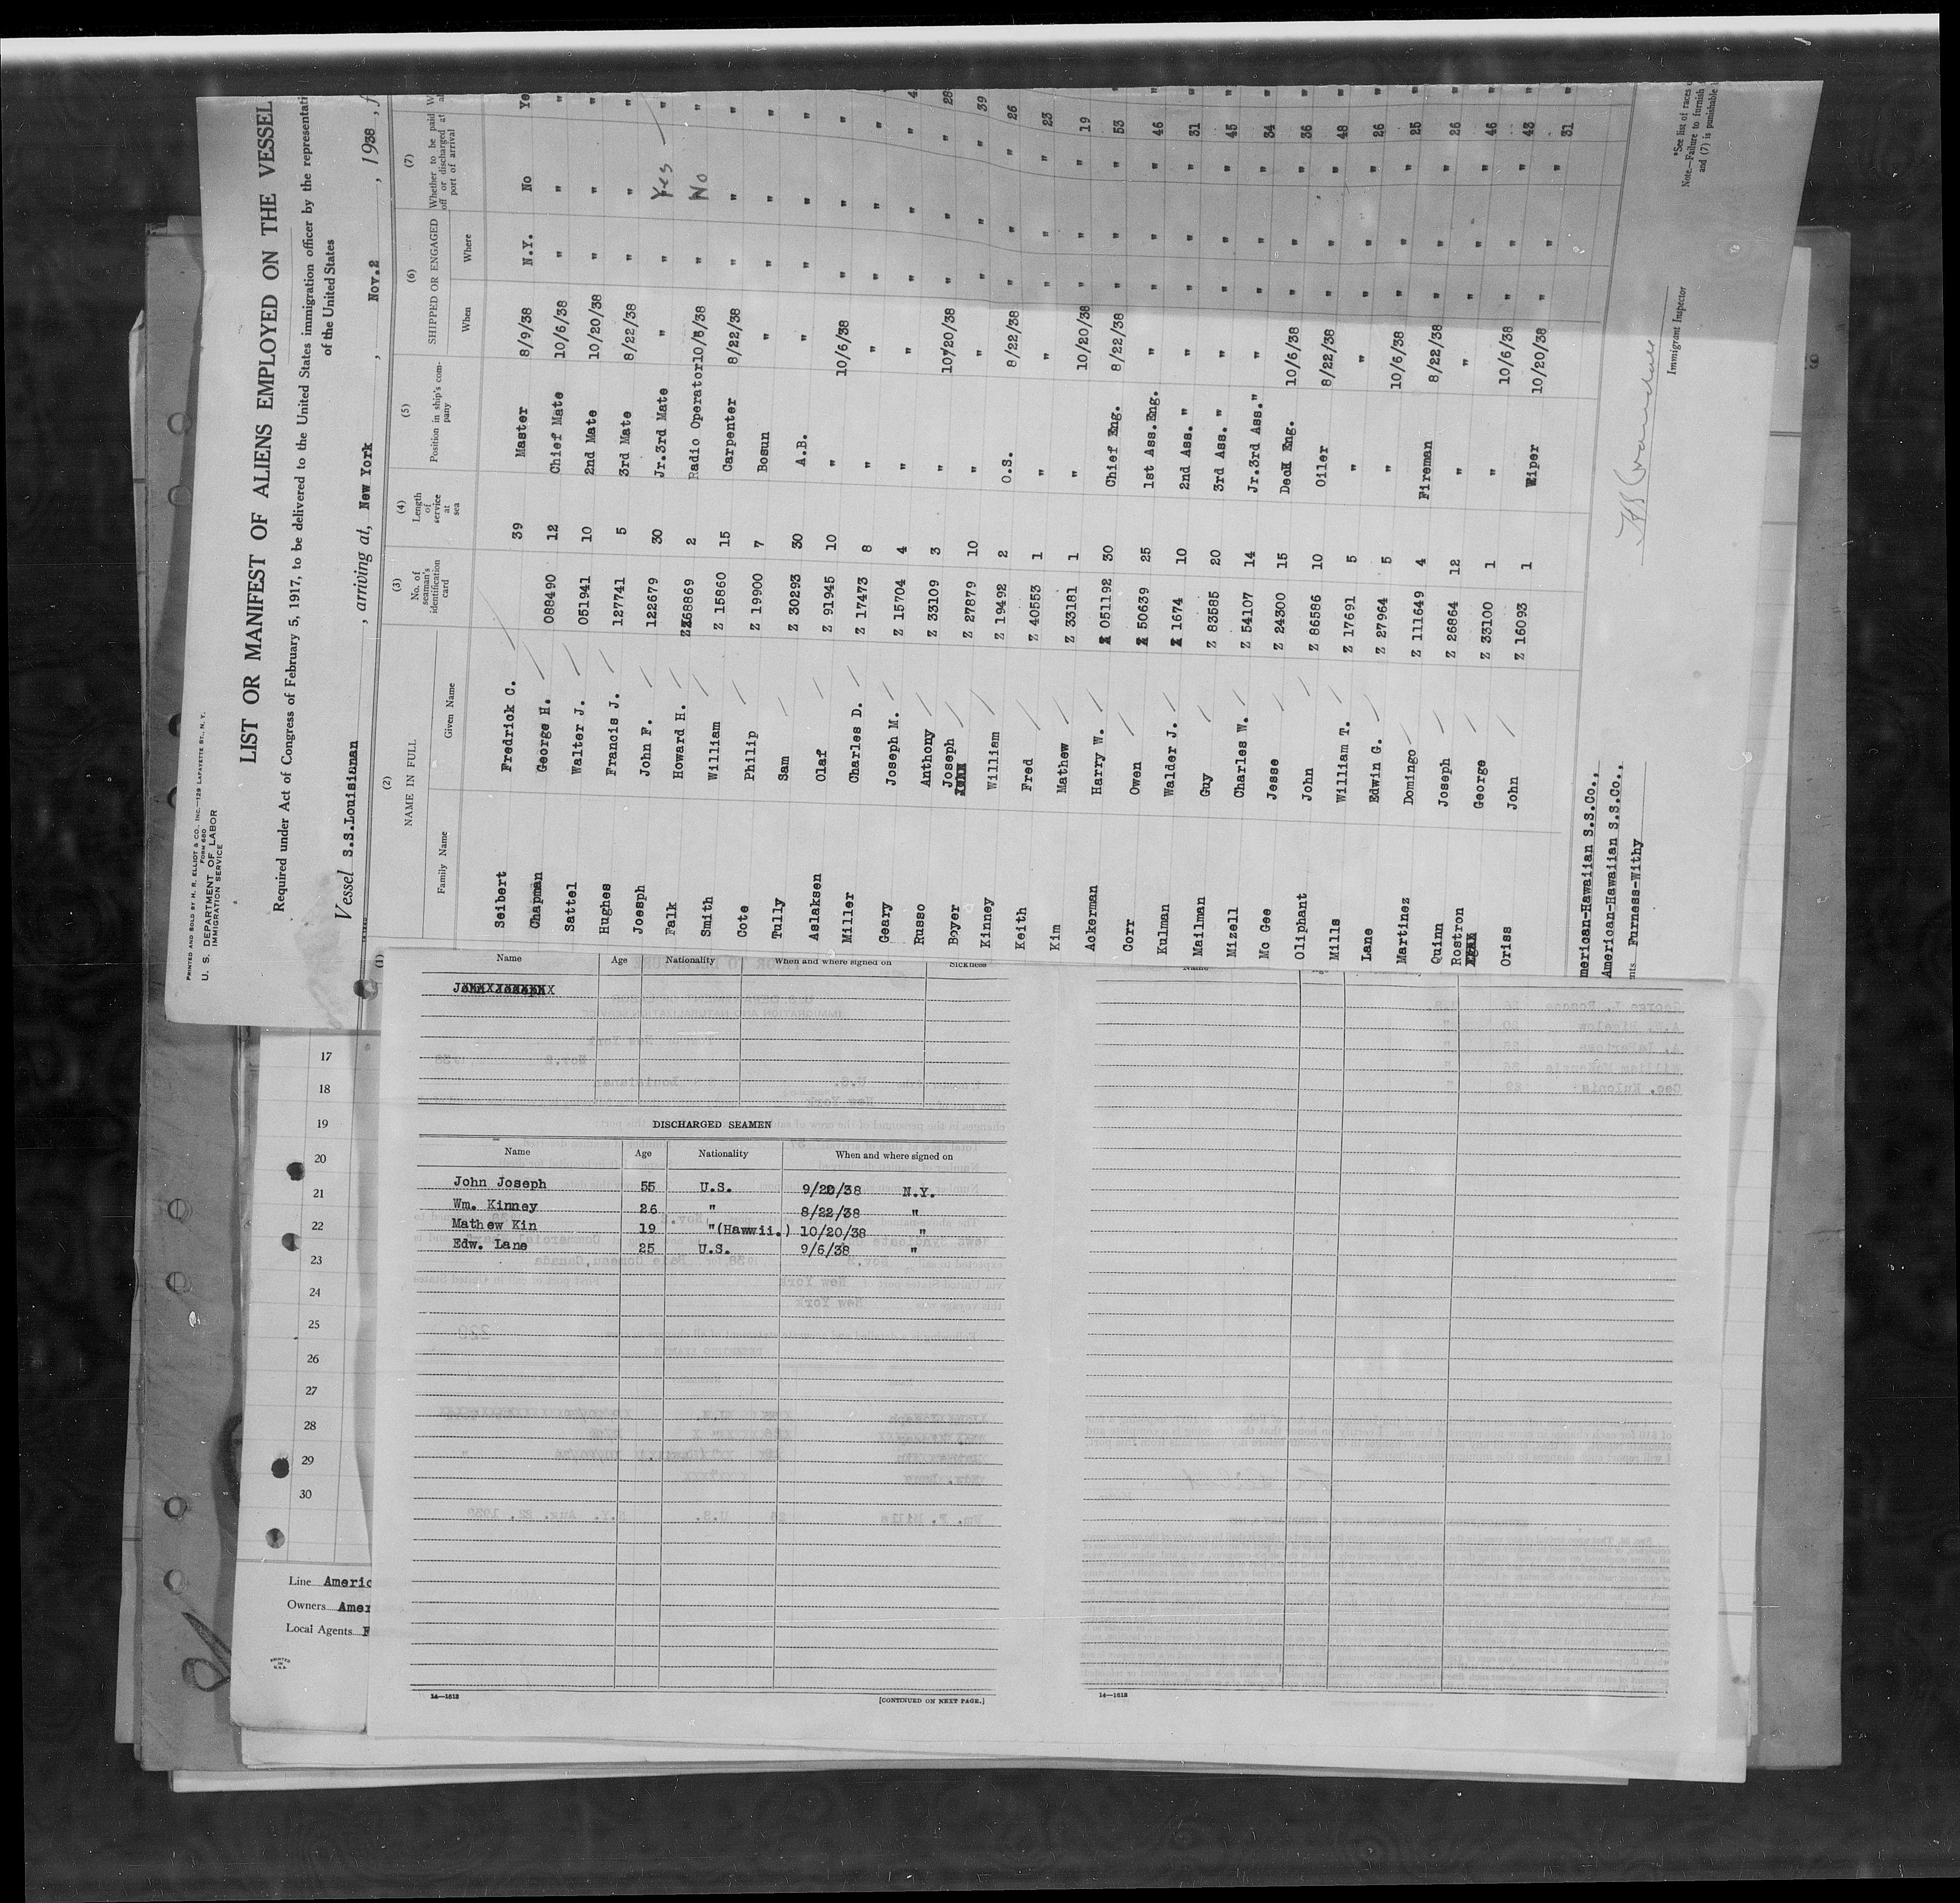 PRINTED AND SOLD BY H. R. ELLIOT & CO., INC.—129 LAFAYETTE ST., N. Y.
FORM 680
U. S. DEPARTMENT OF LABOR
IMMIGRATION SERVICE
LIST OR MANIFEST OF ALIENS EMPLOYED ON THE VESSEL
Required under Act of Congress of February 5, 1917, to be delivered to the United States immigration officer by the representati
of the United States
Vessel S.S.Louisianan , arriving at, New York , Nov.2 , 1938 , f
(1) (2) (3) (4) (5) (6) (7)
NAME IN FULL No. of seaman's identification card Length of service at sea Position in ship's company SHIPPED OR ENGAGED Whether to be paid off or discharged at port of arrival
Family Name Given Name When Where
Seibert Fredrick C. 39 Master 8/9/38 N.Y. No Ye
Chapman George H. 088490 12 Chief Mate 10/6/38 " " "
Sattel Walter J. 051941 10 2nd Mate 10/20/38 " " "
Hughes Francis J. 127741 5 3rd Mate 8/22/38 " " "
Joesph John F. 122679 30 Jr.3rd Mate " " Yes
Falk Howard H. 68869 2 Radio Operator 10/5/38 " No "
Smith William Z 15860 15 Carpenter 8/22/38 " " "
Cote Philip Z 19900 7 Bosun " " " "
Tully Sam Z 30293 30 A.B. " " " "
Aslaksen Olaf Z 91945 10 " 10/6/38 " " "
Miller Charles D. Z 17473 8 " " " " "
Geary Joseph M. Z 15704 4 " " " " " 4
Russo Anthony Z 33109 3 " 10/20/38 " " " 28
Boyer Joseph Z 27879 10 " " " " " 39
Kinney William Z 19492 2 O.S. 8/22/38 " " 26
Keith Fred Z 40553 1 " " " " 23
Kim Mathew Z 33181 1 " 10/20/38 " " 19
Ackerman Harry W. 051192 30 Chief Eng. 8/22/38 " " 53
Corr Owen 50639 25 1st Ass.Eng. " " " 46
Kulman Walder J. 1674 10 2nd Ass. " " " " 31
Mailman Guy Z 83585 20 3rd Ass. " " " " 45
Mizell Charles W. Z 54107 14 Jr.3rd Ass." " " " 34
Mc Gee Jesse Z 24300 15 Deck Eng. 10/6/38 " " 36
Oliphant John Z 86586 10 Oiler 8/22/38 " " 48
Mills William T. Z 17691 5 " " " " 26
Lane Edwin G. Z 27964 5 " 10/6/38 " " 25
Martinez Domingo Z 111649 4 Fireman 8/22/38 " " 26
Quinn Joseph Z 26864 12 " " " " 46
Rostron George Z 33100 1 " 10/6/38 " " 43
Oriss John Z 16093 1 Wiper 10/20/38 " " 31
merican-Hawaiian S.S.Co.,
American-Hawaiian S.S.Co.,
nts Furness-Withy
Immigrant Inspector
*See list of races
Note.—Failure to furnish
and (7) is punishable
Name Age Nationality When and where signed on Sickness
John Joseph
DISCHARGED SEAMEN
Name Age Nationality When and where signed on
John Joseph 55 U.S. 9/20/38 N.Y.
Wm. Kinney 26 " 8/22/38 "
Mathew Kin 19 "(Hawwii.) 10/20/38 "
Edw. Lane 25 U.S. 9/6/38 "
14—1612 [CONTINUED ON NEXT PAGE.]
14—1612
17
18
19
20
21
22
23
24
25
26
27
28
29
30
Line Americ
Owners Amer
Local Agents F
PRINTED IN U.S.A.